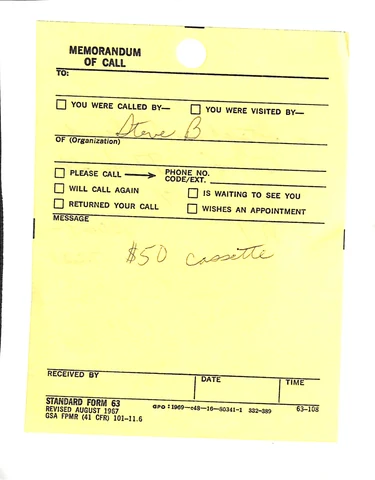 MEMORANDUM
OF CALL
TO:
☐ YOU WERE CALLED BY— ☐ YOU WERE VISITED BY—
Steve B
OF (Organization)
☐ PLEASE CALL → PHONE NO. CODE/EXT.
☐ WILL CALL AGAIN ☐ IS WAITING TO SEE YOU
☐ RETURNED YOUR CALL ☐ WISHES AN APPOINTMENT
MESSAGE
$50 cassette
RECEIVED BY DATE TIME
STANDARD FORM 63 GPO : 1969—c48—16—80341-1 332-389 63-108
REVISED AUGUST 1967
GSA FPMR (41 CFR) 101-11.6